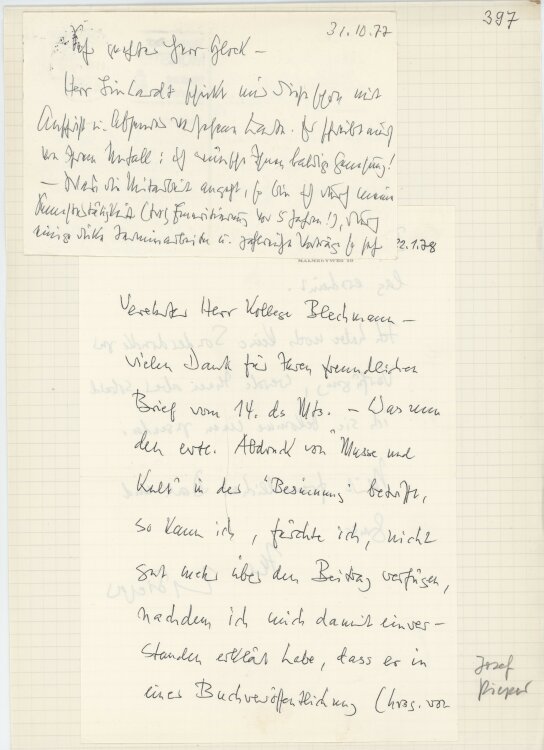 397
31.10.77
Herr Glock –
Herr Linhardt schickt mir
Aufschrift u.
von Ihrem Unfall: ich wünsche Ihnen baldige Genesung!
– Was die Mitarbeit angeht, so bin ich durch meine
(trotz Emeritierung vor 5 Jahren!), durch
einige u. zahlreiche Vorträge so sehr
22.1.78
MALMEDYWEG 10
Verehrter Herr Kollege Blechmann –
vielen Dank für Ihren freundlichen
Brief vom 14. ds Mts. – Was nun
den evtl. Abdruck von "Musse und
Kult" in der "Besinnung" betrifft,
so kann ich, fürchte ich, nicht
gut mehr über den Beitrag verfügen,
nachdem ich mich damit einver-
standen erklärt habe, dass er in
einer Buchveröffentlichung (hrsg. von
Josef
Pieper